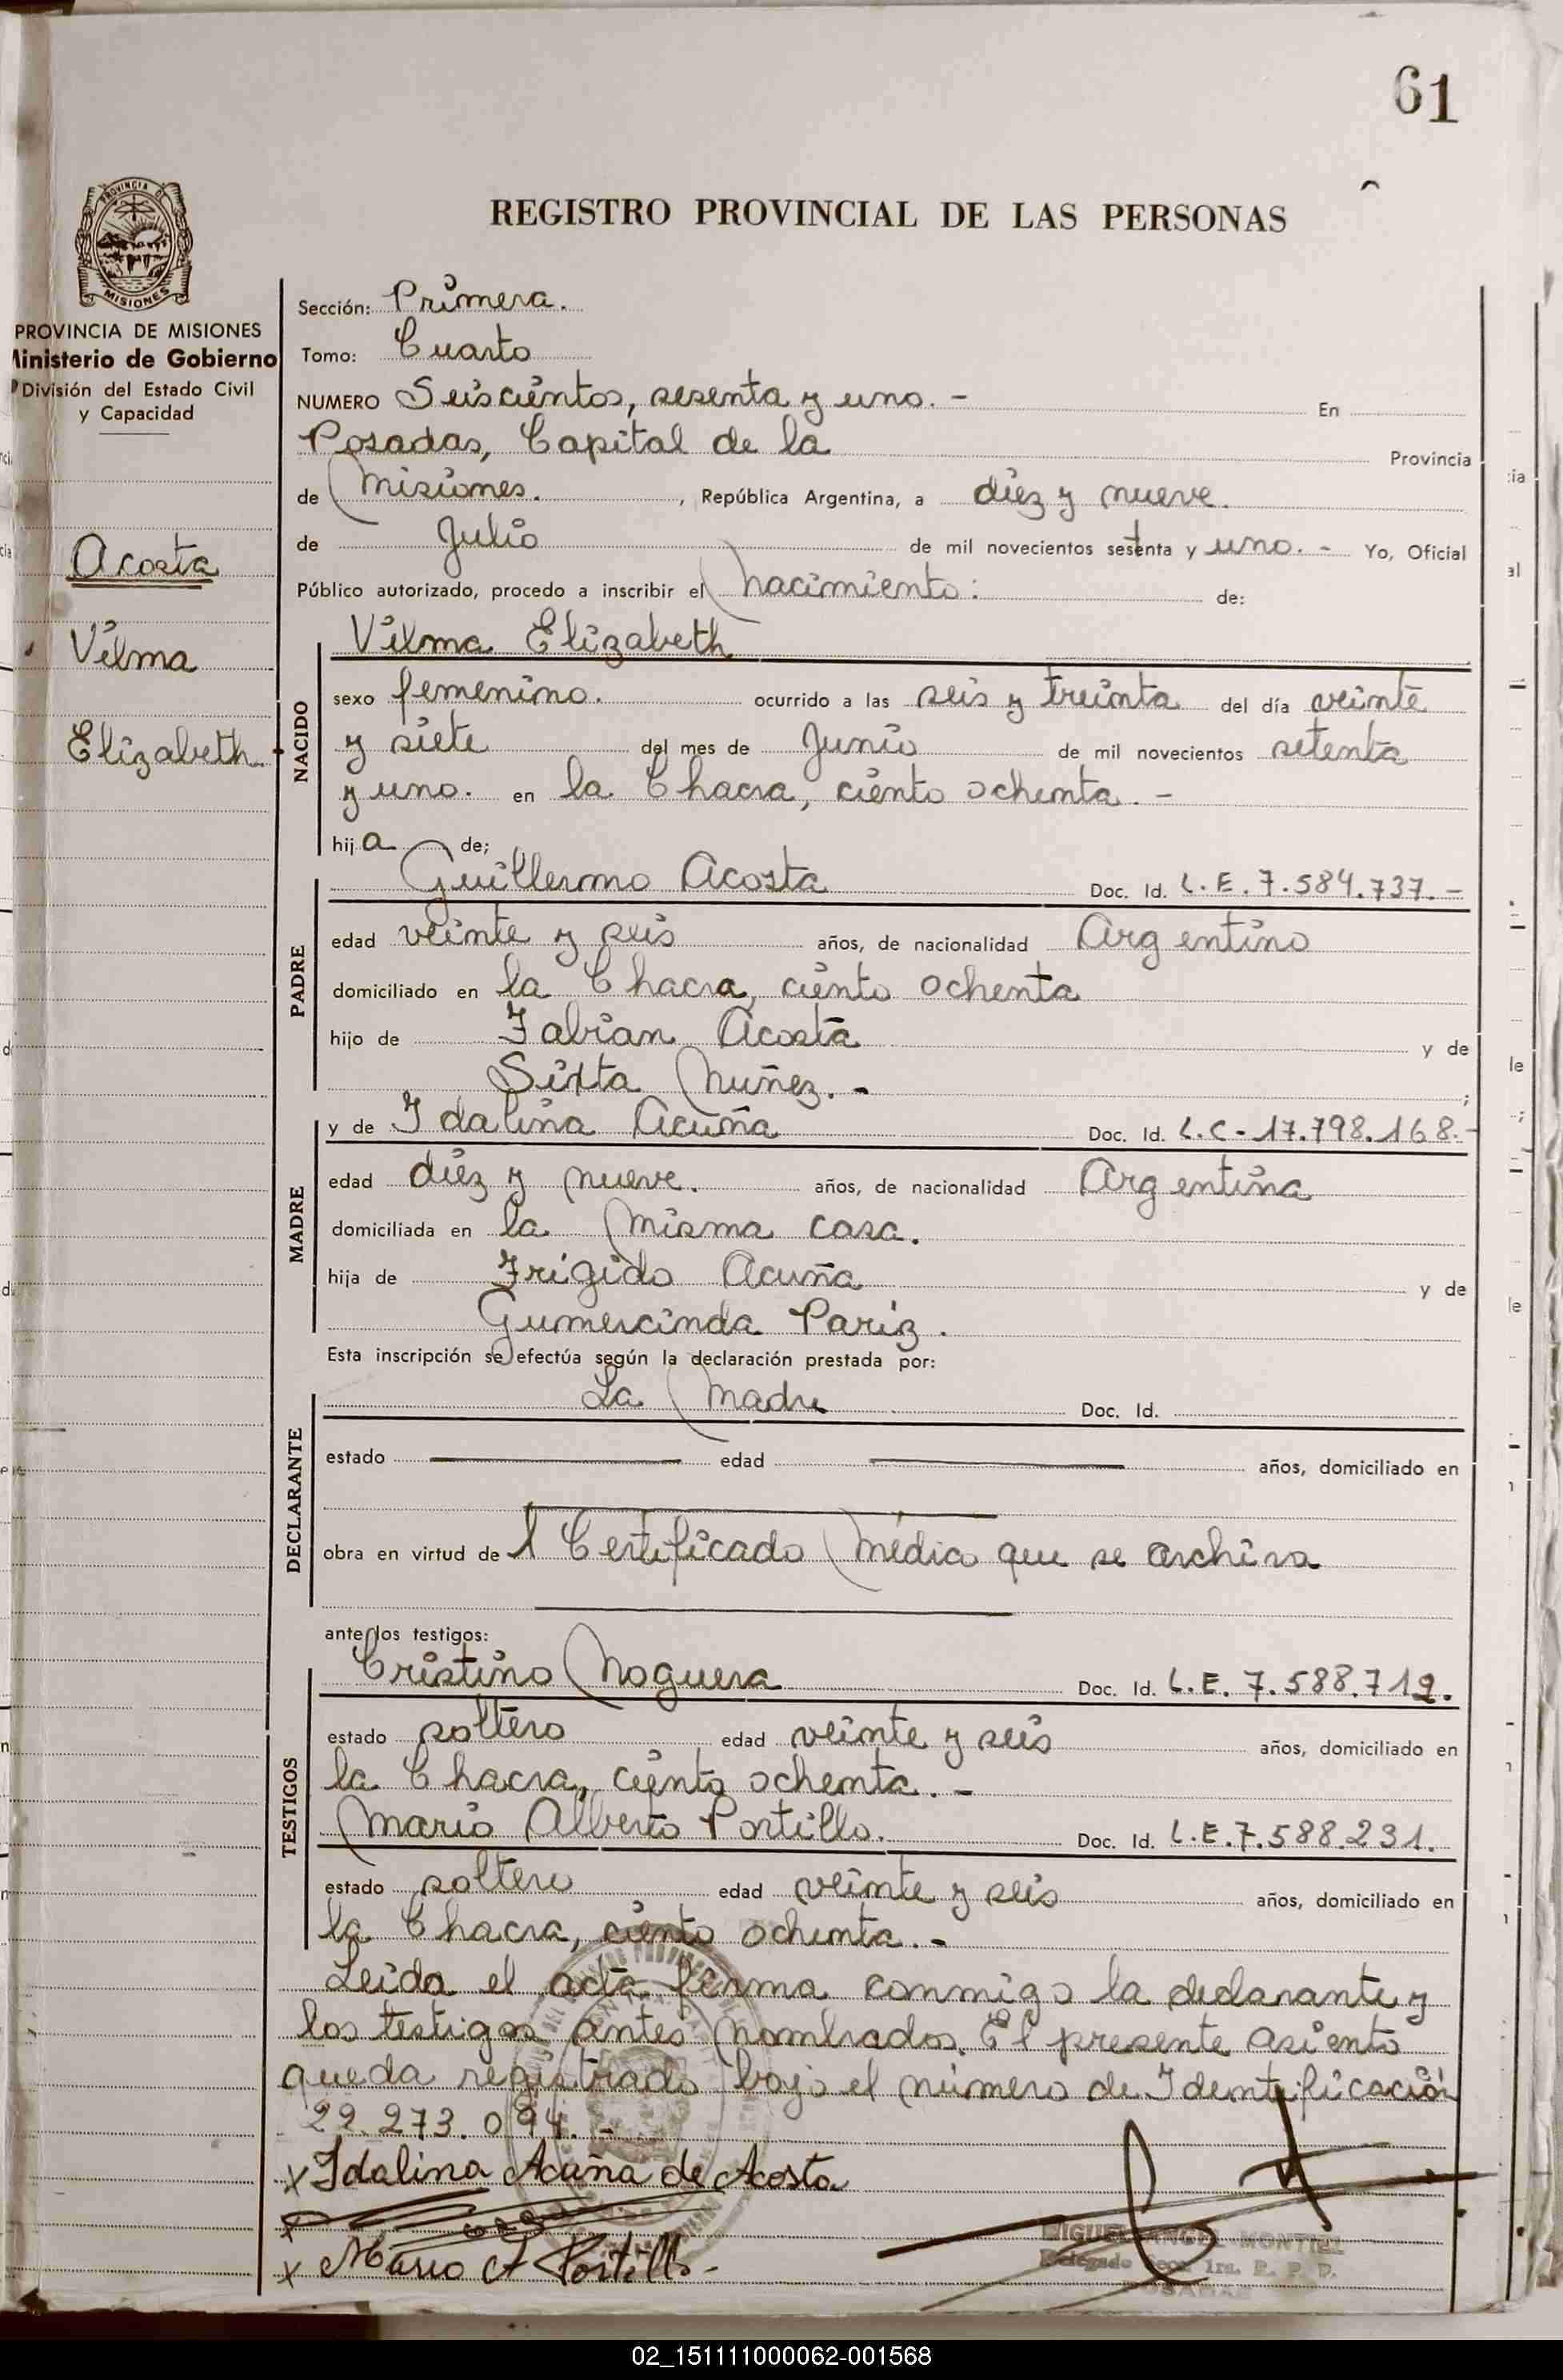 61
REGISTRO PROVINCIAL DE LAS PERSONAS
PROVINCIA DE
MISIONES
PROVINCIA DE MISIONES
Ministerio de Gobierno
División del Estado Civil
y Capacidad
Acosta
Vilma
Elizabeth.
Sección: Primera.
Tomo: Cuarto
NUMERO Seiscientos, sesenta y uno. - En
Posadas, Capital de la Provincia
de Misiones. , República Argentina, a diez y nueve.
de Julio de mil novecientos setenta y uno. - Yo, Oficial
Público autorizado, procedo a inscribir el nacimiento: de:
NACIDO
Vilma Elizabeth
sexo femenino. ocurrido a las seis y treinta del día veinte
y siete del mes de Junio de mil novecientos setenta
y uno. en la Chacra, ciento ochenta. -
hija de;
PADRE
Guillermo Acosta Doc. Id. L.E. 7.584.737. -
edad veinte y seis años, de nacionalidad Argentino
domiciliado en la Chacra, ciento ochenta
hijo de Fabian Acosta y de
Sixta Nuñez. - ;
MADRE
y de Idalina Acuña Doc. Id. L.C - 17.798.168. -
edad diez y nueve. años, de nacionalidad Argentina
domiciliada en la misma casa.
hija de Frigido Acuña y de
Gumercinda Pariz.
Esta inscripción se efectúa según la declaración prestada por:
DECLARANTE
La Madre Doc. Id.
estado edad años, domiciliado en
obra en virtud del Certificado Médico que se archiva
ante los testigos:
TESTIGOS
Cristino Noguera Doc. Id. L.E. 7.588.712.
estado soltero edad veinte y seis años, domiciliado en
la Chacra, ciento ochenta. -
Mario Alberto Portillo. Doc. Id. L.E. 7.588.231.
estado soltero edad veinte y seis años, domiciliado en
la Chacra, ciento ochenta. -
Leida el acta firma conmigo la declarante y
los testigos antes nombrados. El presente asiento
queda registrado bajo el número de Identificación
22.273.094. -
x Idalina Acuña de Acosta
x Mario A Portillo -
MIGUEL ANGEL MONTIEL
Delegado Secc. 1ra. R. P. P.
POSADAS
02_151111000062-001568